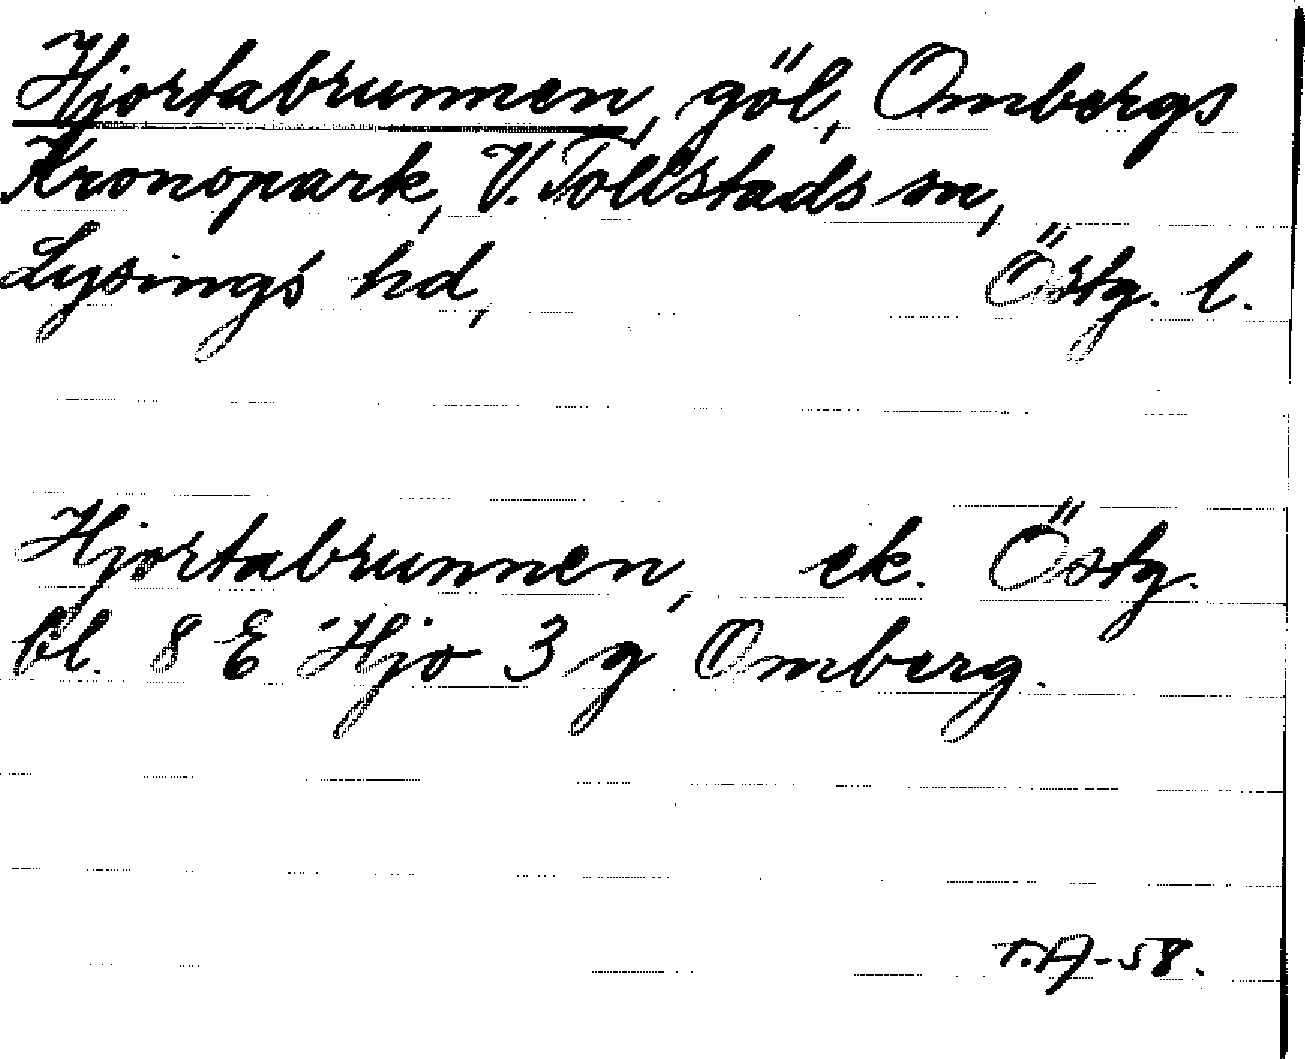 Hjortabrunnen, göl, Ombergs
Kronopark, V. Tollstads sn,
Lysings hd, Östg. l.
Hjortabrunnen, ek. Östg.
bl. 8 E Hjo 3 g Omberg.
T.A-58.